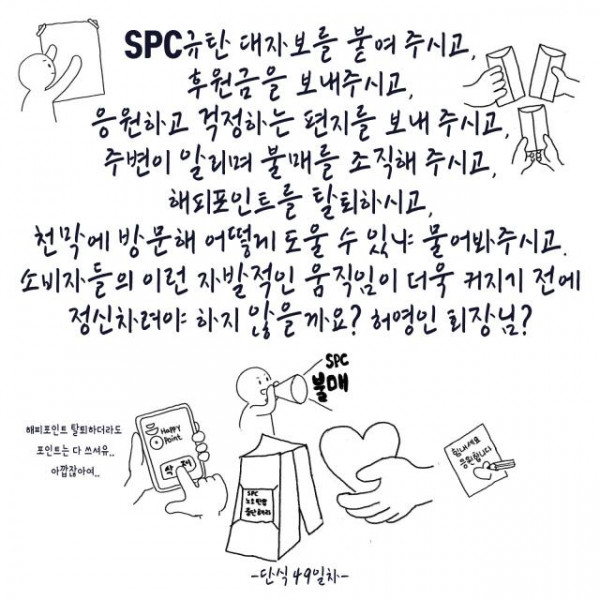 SPC규탄 대자보를 붙여 주시고,
후원금을 보내주시고,
응원하고 걱정하는 편지를 보내 주시고,
주변이 알리며 불매를 조직해 주시고,
해피포인트를 탈퇴하시고,
천막에 방문해 어떻게 도울 수 있냐 물어봐주시고.
소비자들의 이런 자발적인 움직임이 더욱 커지기 전에
정신차려야 하지 않을까요? 허영인 회장님?
SPC
불매
해피포인트 탈퇴하더라도
포인트는 다 쓰셔유..
아깝잖아여..
Happy
Point
삭제
힘내세요
응원합니다
SPC
노조탄압
중단하라
-단식 49일차-